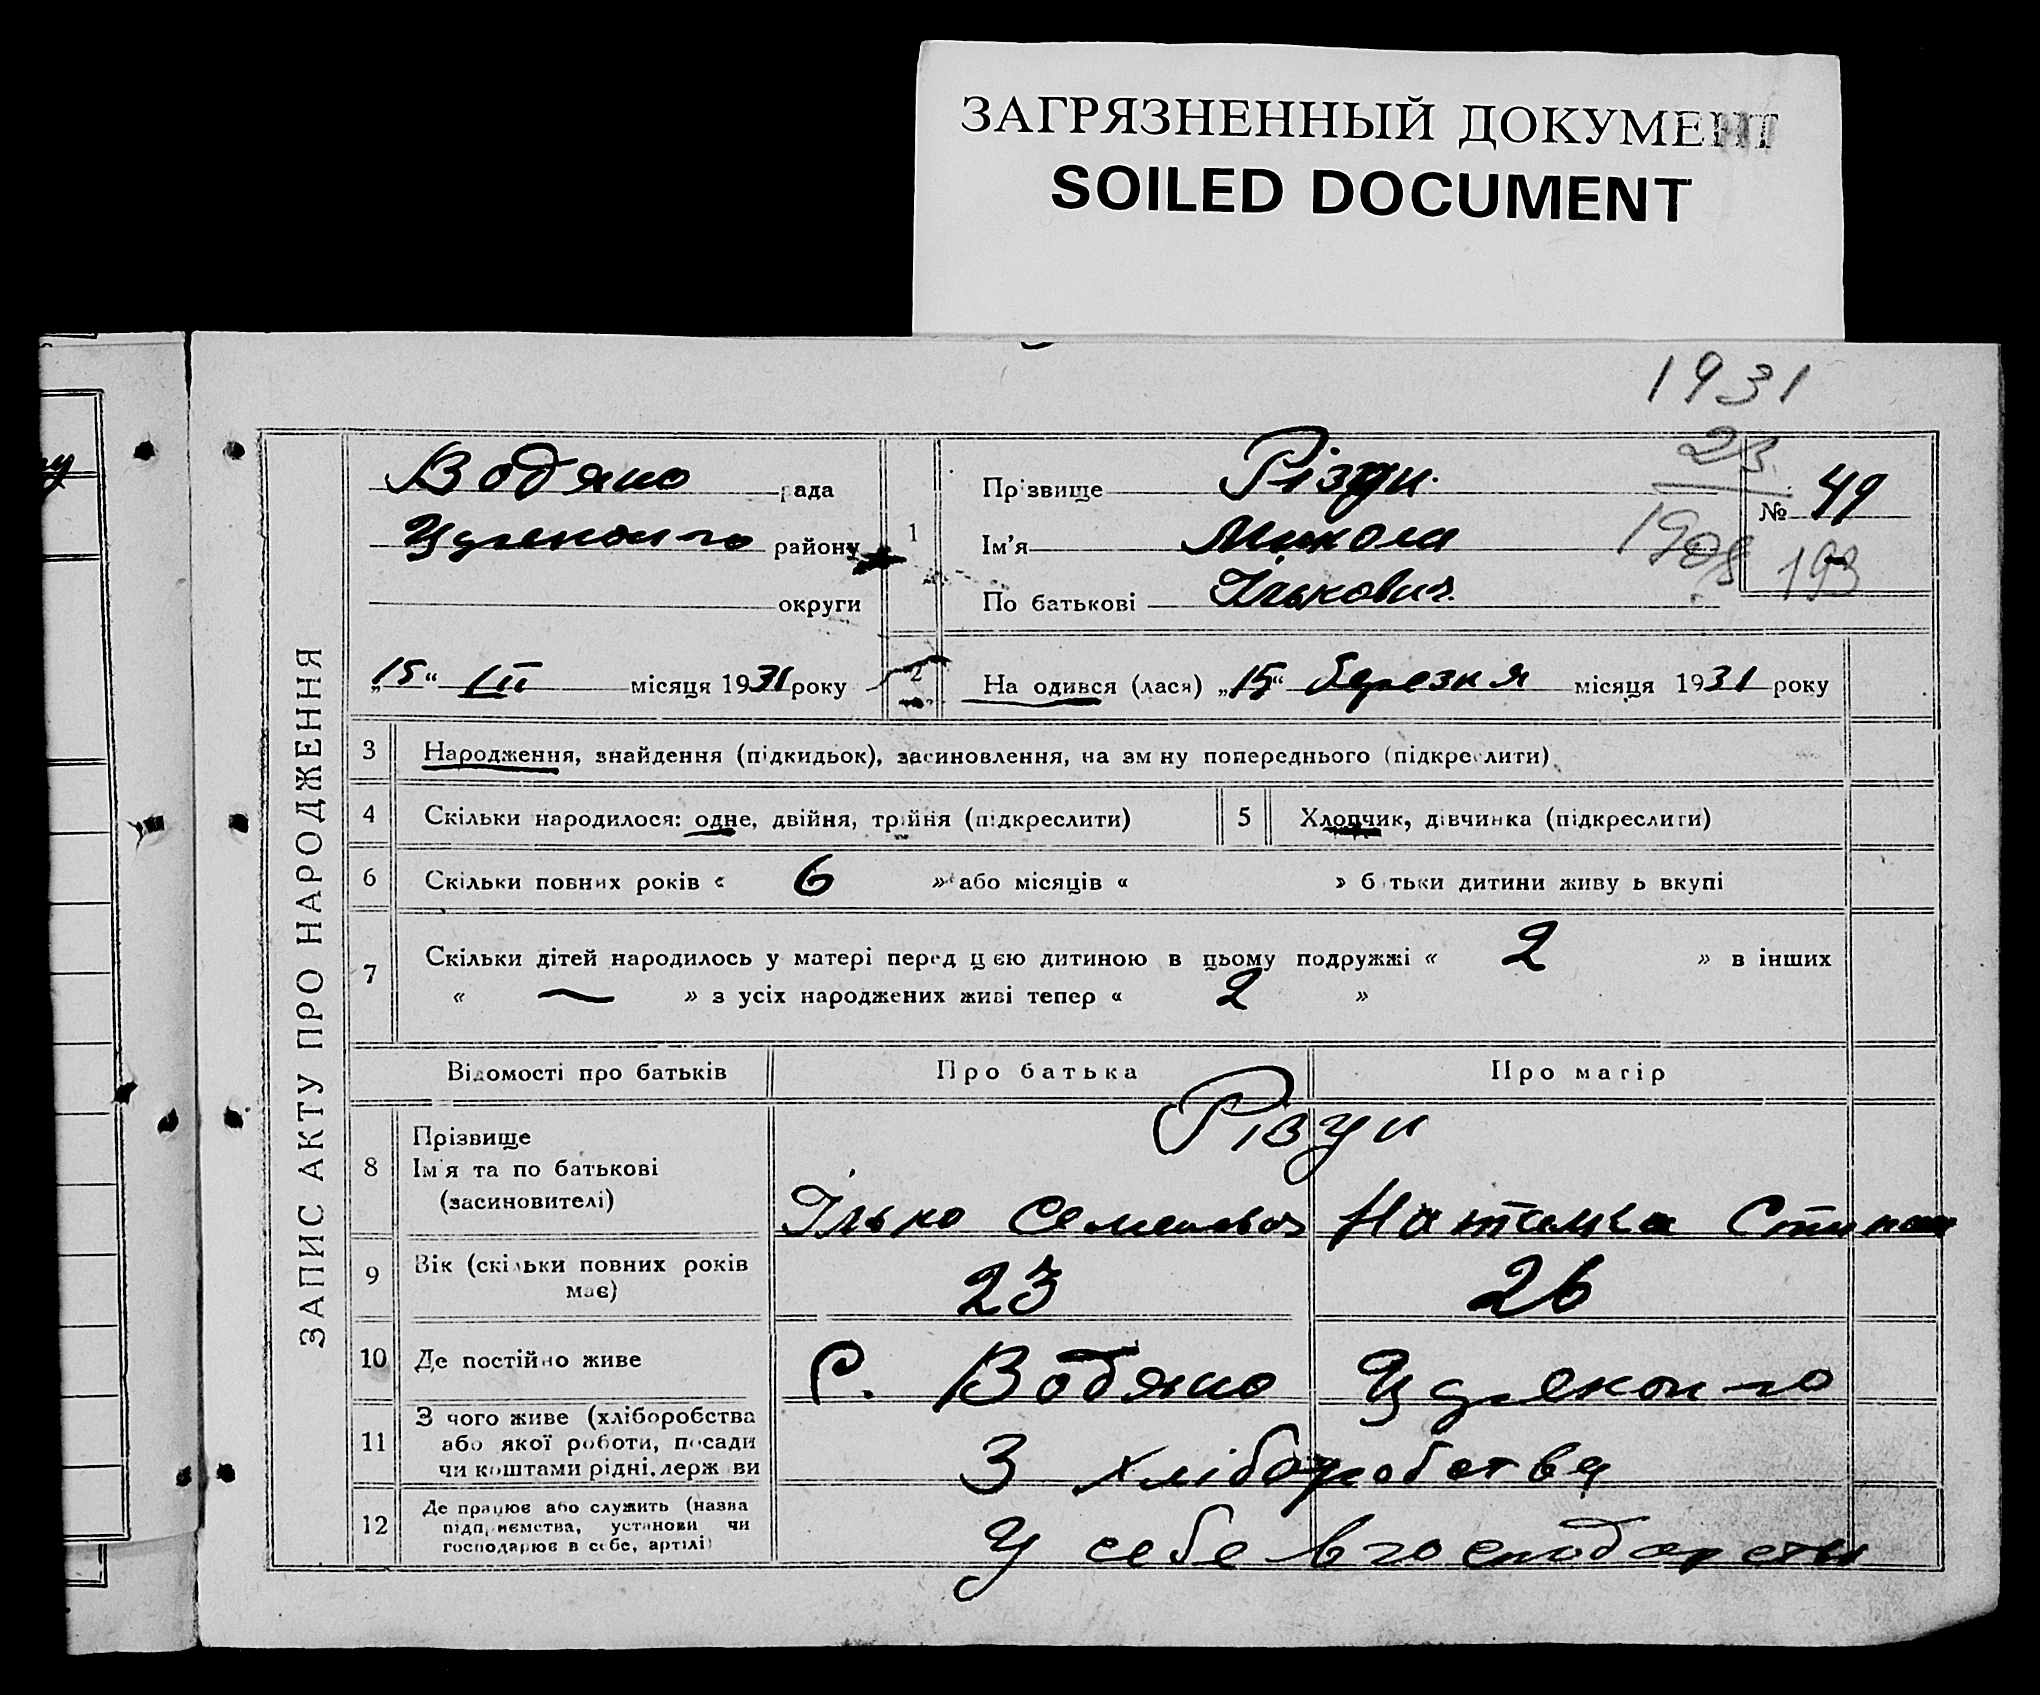 ЗАГРЯЗНЕННЫЙ ДОКУМЕНТ
SOILED DOCUMENT
1931
23
1908
193
ЗАПИС АКТУ ПРО НАРОДЖЕННЯ
Водяно рада
району
округи
„15“ III місяця 1931 року
1
Прізвище
№ 49
Ім'я Микола
По батькові Ількович
2
На одився (лася) „15“ березня місяця 1931 року
3 Народження, знайдення (підкидьок), засиновлення, на зм ну попереднього (підкреслити)
4 Скільки народилося: одне, двійня, трійня (підкреслити)
5 Хлопчик, дівчинка (підкреслити)
6 Скільки повних років « 6 » або місяців « » б тьки дитини живу ь вкупі
7 Скільки дітей народилось у матері перед цією дитиною в цьому подружжі « 2 » в інших
« — » з усіх народжених живі тепер « 2 »
Відомості про батьків Про батька Про матір
8 Прізвище
Ім'я та по батькові
(засиновителі)
Ілько
9 Вік (скільки повних років
має)
23 26
10 Де постійно живе
С. Водяно
11 З чого живе (хліборобства
або якої роботи, посади
чи коштами рідні, держ ви
З хліборобства
12 Де працює або служить (назва
підприємства, установи чи
господарює в себе, артілі)
У себе в господарстві